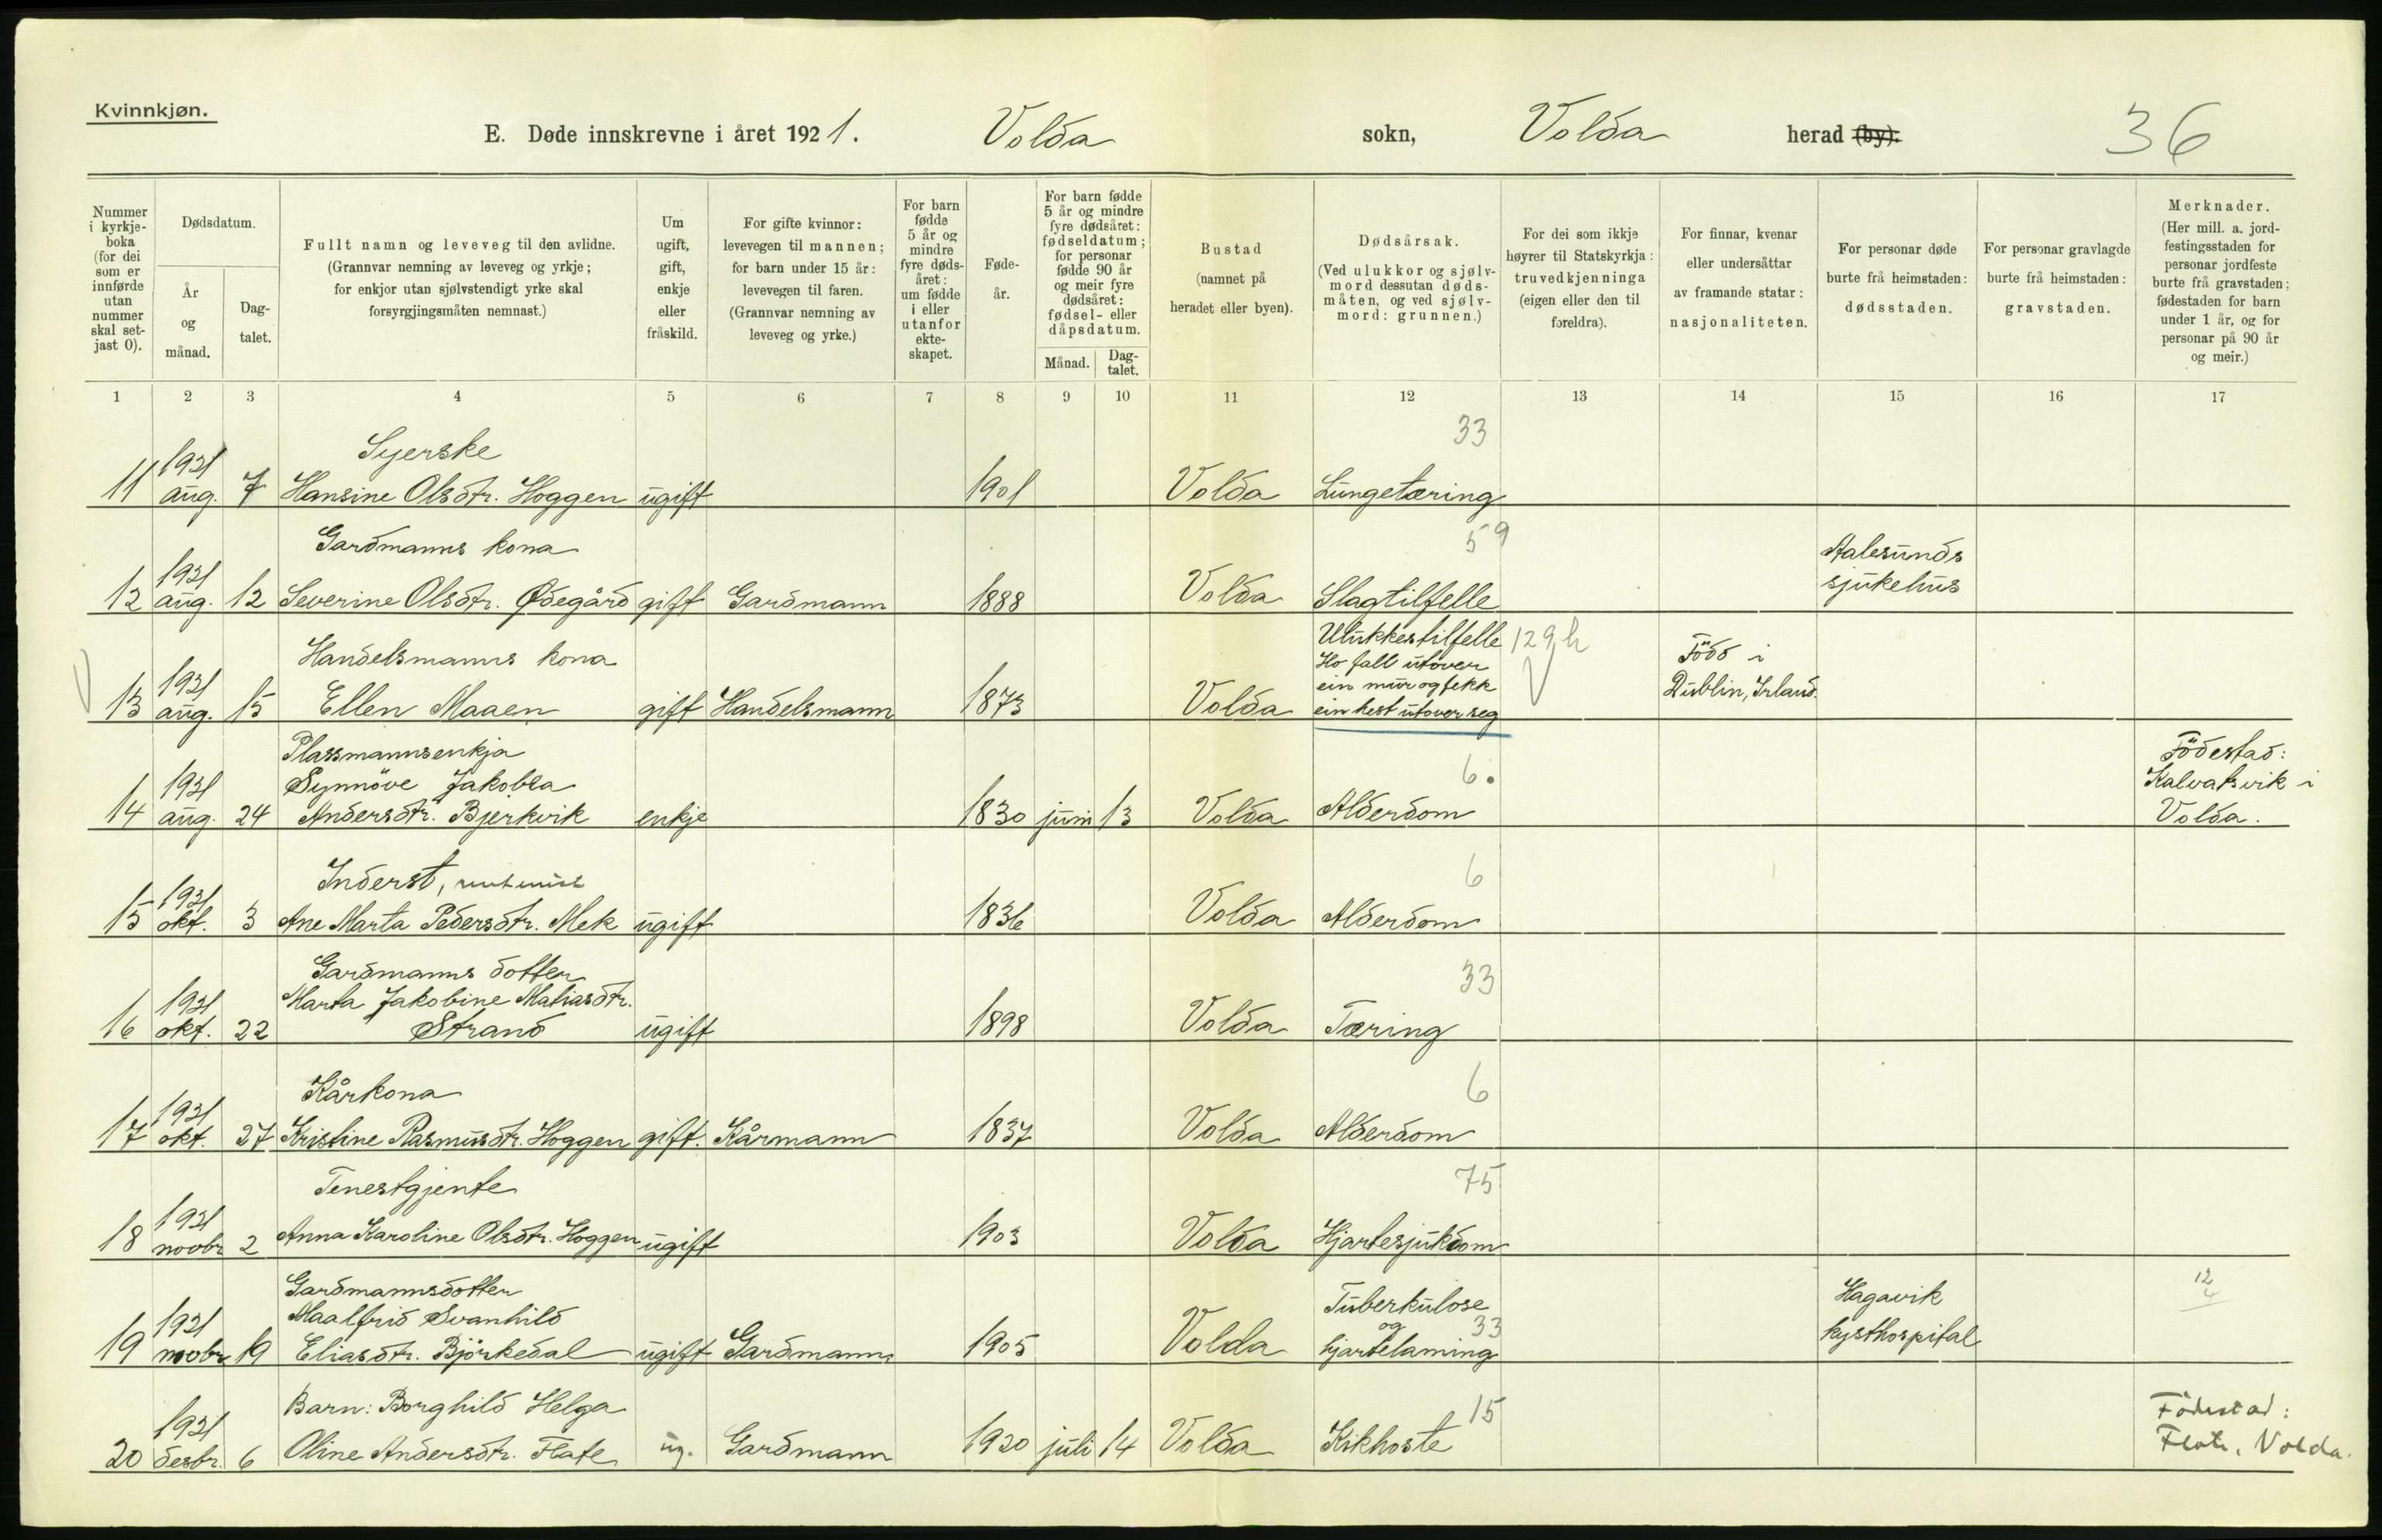 Kvinnkjøn.
E. Døde innskrevne i året 1921. Volda sokn, Volda herad (by). 36
Nummer i kyrkje-boka (for dei som er innførde utan nummer skal set-jast 0).
Dødsdatum.
År og månad.
Dag-talet.
Fullt namn og leveveg til den avlidne.
(Grannvar nemning av leveveg og yrkje; for enkjor utan sjølvstendigt yrke skal forsyrgjingsmåten nemnast.)
Um ugift, gift, enkje eller fråskild.
For gifte kvinnor: levevegen til mannen; for barn under 15 år: levevegen til faren. (Grannvar nemning av leveveg og yrke.)
For barn fødde 5 år og mindre fyre døds-året: um fødde i eller utanfor ekte-skapet.
Føde-år.
For barn fødde 5 år og mindre fyre dødsåret: fødseldatum; for personar fødde 90 år og meir fyre dødsåret: fødsel- eller dåpsdatum.
Månad.
Dag-talet.
Bustad (namnet på heradet eller byen).
Dødsårsak. (Ved ulukkor og sjølv-mord dessutan døds-måten, og ved sjølv-mord: grunnen.)
For dei som ikkje høyrer til Statskyrkja: truvedkjenninga (eigen eller den til foreldra).
For finnar, kvenar eller undersåttar av framande statar: nasjonaliteten.
For personar døde burte frå heimstaden: dødsstaden.
For personar gravlagde burte frå heimstaden: gravstaden.
Merknader. (Her mill. a. jord-festingsstaden for personar jordfeste burte frå gravstaden; fødestaden for barn under 1 år, og for personar på 90 år og meir.)
1 2 3 4 5 6 7 8 9 10 11 12 13 14 15 16 17
1921 Syerske 33
11 aug. 7 Hansine Olsdtr. Hoggen ugift 1901 Volda Lungetæring
1921 Gardmanns kona 59 Aalesunds
12 aug. 12 Severine Olsdtr. Ødegård gift Gardmann 1888 Volda Slagtilfelle sjukehus
1921 Handelsmanns kona Ulukkestilfelle 129h Född i
Ho fall utover
ein mur og fekk
13 aug. 15 Ellen Maaen gift Handelsmann 1873 Volda ein hest utover seg Dublin, Irland.
Plassmannsenkja Födestad:
1921 Synnöve Jakobea 6. Kalvatsvik i
14 aug. 24 Andersdtr. Bjerkvik enkje 1830 juni 13 Volda Alderdom Volda.
1921 Inderst, 6
15 okt. 3 Ane Marta Pedersdtr. Mek ugift 1836 Volda Alderdom
Gardmanns dotter 33
1921 Marta Jakobine Matiasdtr.
16 okt. 22 Strand ugift 1898 Volda Tæring
1921 Kårkona 6
17 okt. 27 Kristine Rasmusdtr. Hoggen gift. Kårmann 1837 Volda Alderdom
1921 Tenestgjente 75
18 novbr 2 Anna Karoline Olsdtr. Hoggen ugift 1903 Volda Hjartesjukdom
Gardmannsdotter Tuberkulose Hagavik 12
1921 Maalfrid Svanhild og 33 4
19 novbr 19 Eliasdtr. Björkedal ugift Gardmann 1905 Volda hjartelaming kysthospital
1921 Barn: Borghild Helga 15 Födestad:
20 desbr. 6 Oline Andersdtr. Flate ug. Gardmann 1920 juli 14 Volda Kikhoste Flate, Volda.